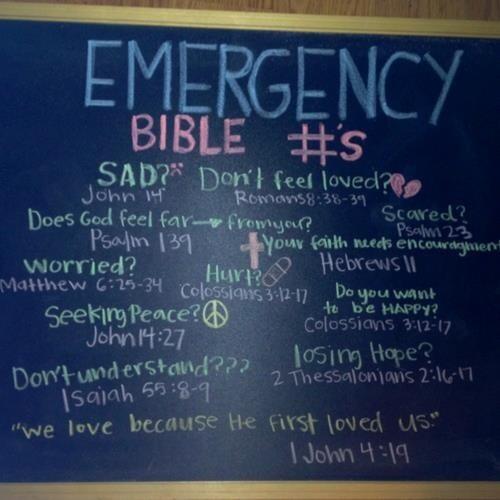 EMERGENCY
BIBLE #'S
SAD?
John 14
Don't feel loved?
Romans 8:38-39
Does God feel far from you?
Psalm 139
Scared?
Psalm 23
Your faith needs encouragment
Hebrews 11
Worried?
Matthew 6:25-34
Hurt?
Colossians 3:12-17
Do you want
to be HAPPY?
Colossians 3:12-17
Seeking Peace?
John 14:27
losing Hope?
2 Thessalonians 2:16-17
Don't understand???
Isaiah 55:8-9
"We love because He first loved us."
1 John 4:19